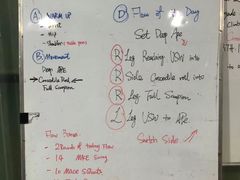 A) WARM UP
Hip
Shoulder
B) Movement
Deep APE
Crocodile Roll
Full Scorpion
Flow Bonus
- 2 Rounds of today Flow
- 14 MACE Swing
- 10 MACE Squats
D) Flow of the Day
Set Deep Ape
R Leg Reaching USW into
R Sides Crocodile roll into
R Leg Full Scorpion
L Leg USW to APE
Switch Side